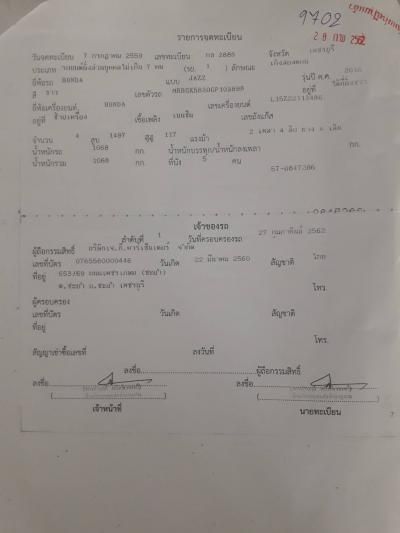 9702
รายการจดทะเบียน
28 กพ 2562
วันจดทะเบียน 7 กรกฎาคม 2559 เลขทะเบียน กล 2885 จังหวัด เพชรบุรี
ประเภท รถยนต์นั่งส่วนบุคคลไม่เกิน 7 คน (รย. 1 ) ลักษณะ
ยี่ห้อรถ HONDA แบบ JAZZ รุ่นปี ค.ศ. 2016
สี ขาว เลขตัวรถ อยู่ที่
ยี่ห้อเครื่องยนต์ HONDA เลขเครื่องยนต์
อยู่ที่ เชื้อเพลิง เบนซิน เลขถังแก๊ส
จำนวน 4 สูบ 1497 ซีซี 117 แรงม้า 2 เพลา 4 ล้อ ยาง 4 เส้น
น้ำหนักรถ 1068 กก. น้ำหนักบรรทุก/น้ำหนักลงเพลา กก.
น้ำหนักรวม 1068 กก. ที่นั่ง 5 คน
57-0847386
เจ้าของรถ
ลำดับที่ 1 วันที่ครอบครองรถ 27 กุมภาพันธ์ 2562
ผู้ถือกรรมสิทธิ์ จำกัด
เลขที่บัตร 0765560000446 วันเกิด 22 มีนาคม 2560 สัญชาติ ไทย
ที่อยู่ 653/69 ถนนเพชรเกษม (ชะอำ)
ต.ชะอำ อ.ชะอำ เพชรบุรี โทร.
ผู้ครอบครอง
เลขที่บัตร วันเกิด สัญชาติ
ที่อยู่
โทร.
สัญญาเช่าซื้อเลขที่ ลงวันที่
ลงชื่อ ผู้ถือกรรมสิทธิ์
ลงชื่อ ลงชื่อ
เจ้าหน้าที่ นายทะเบียน